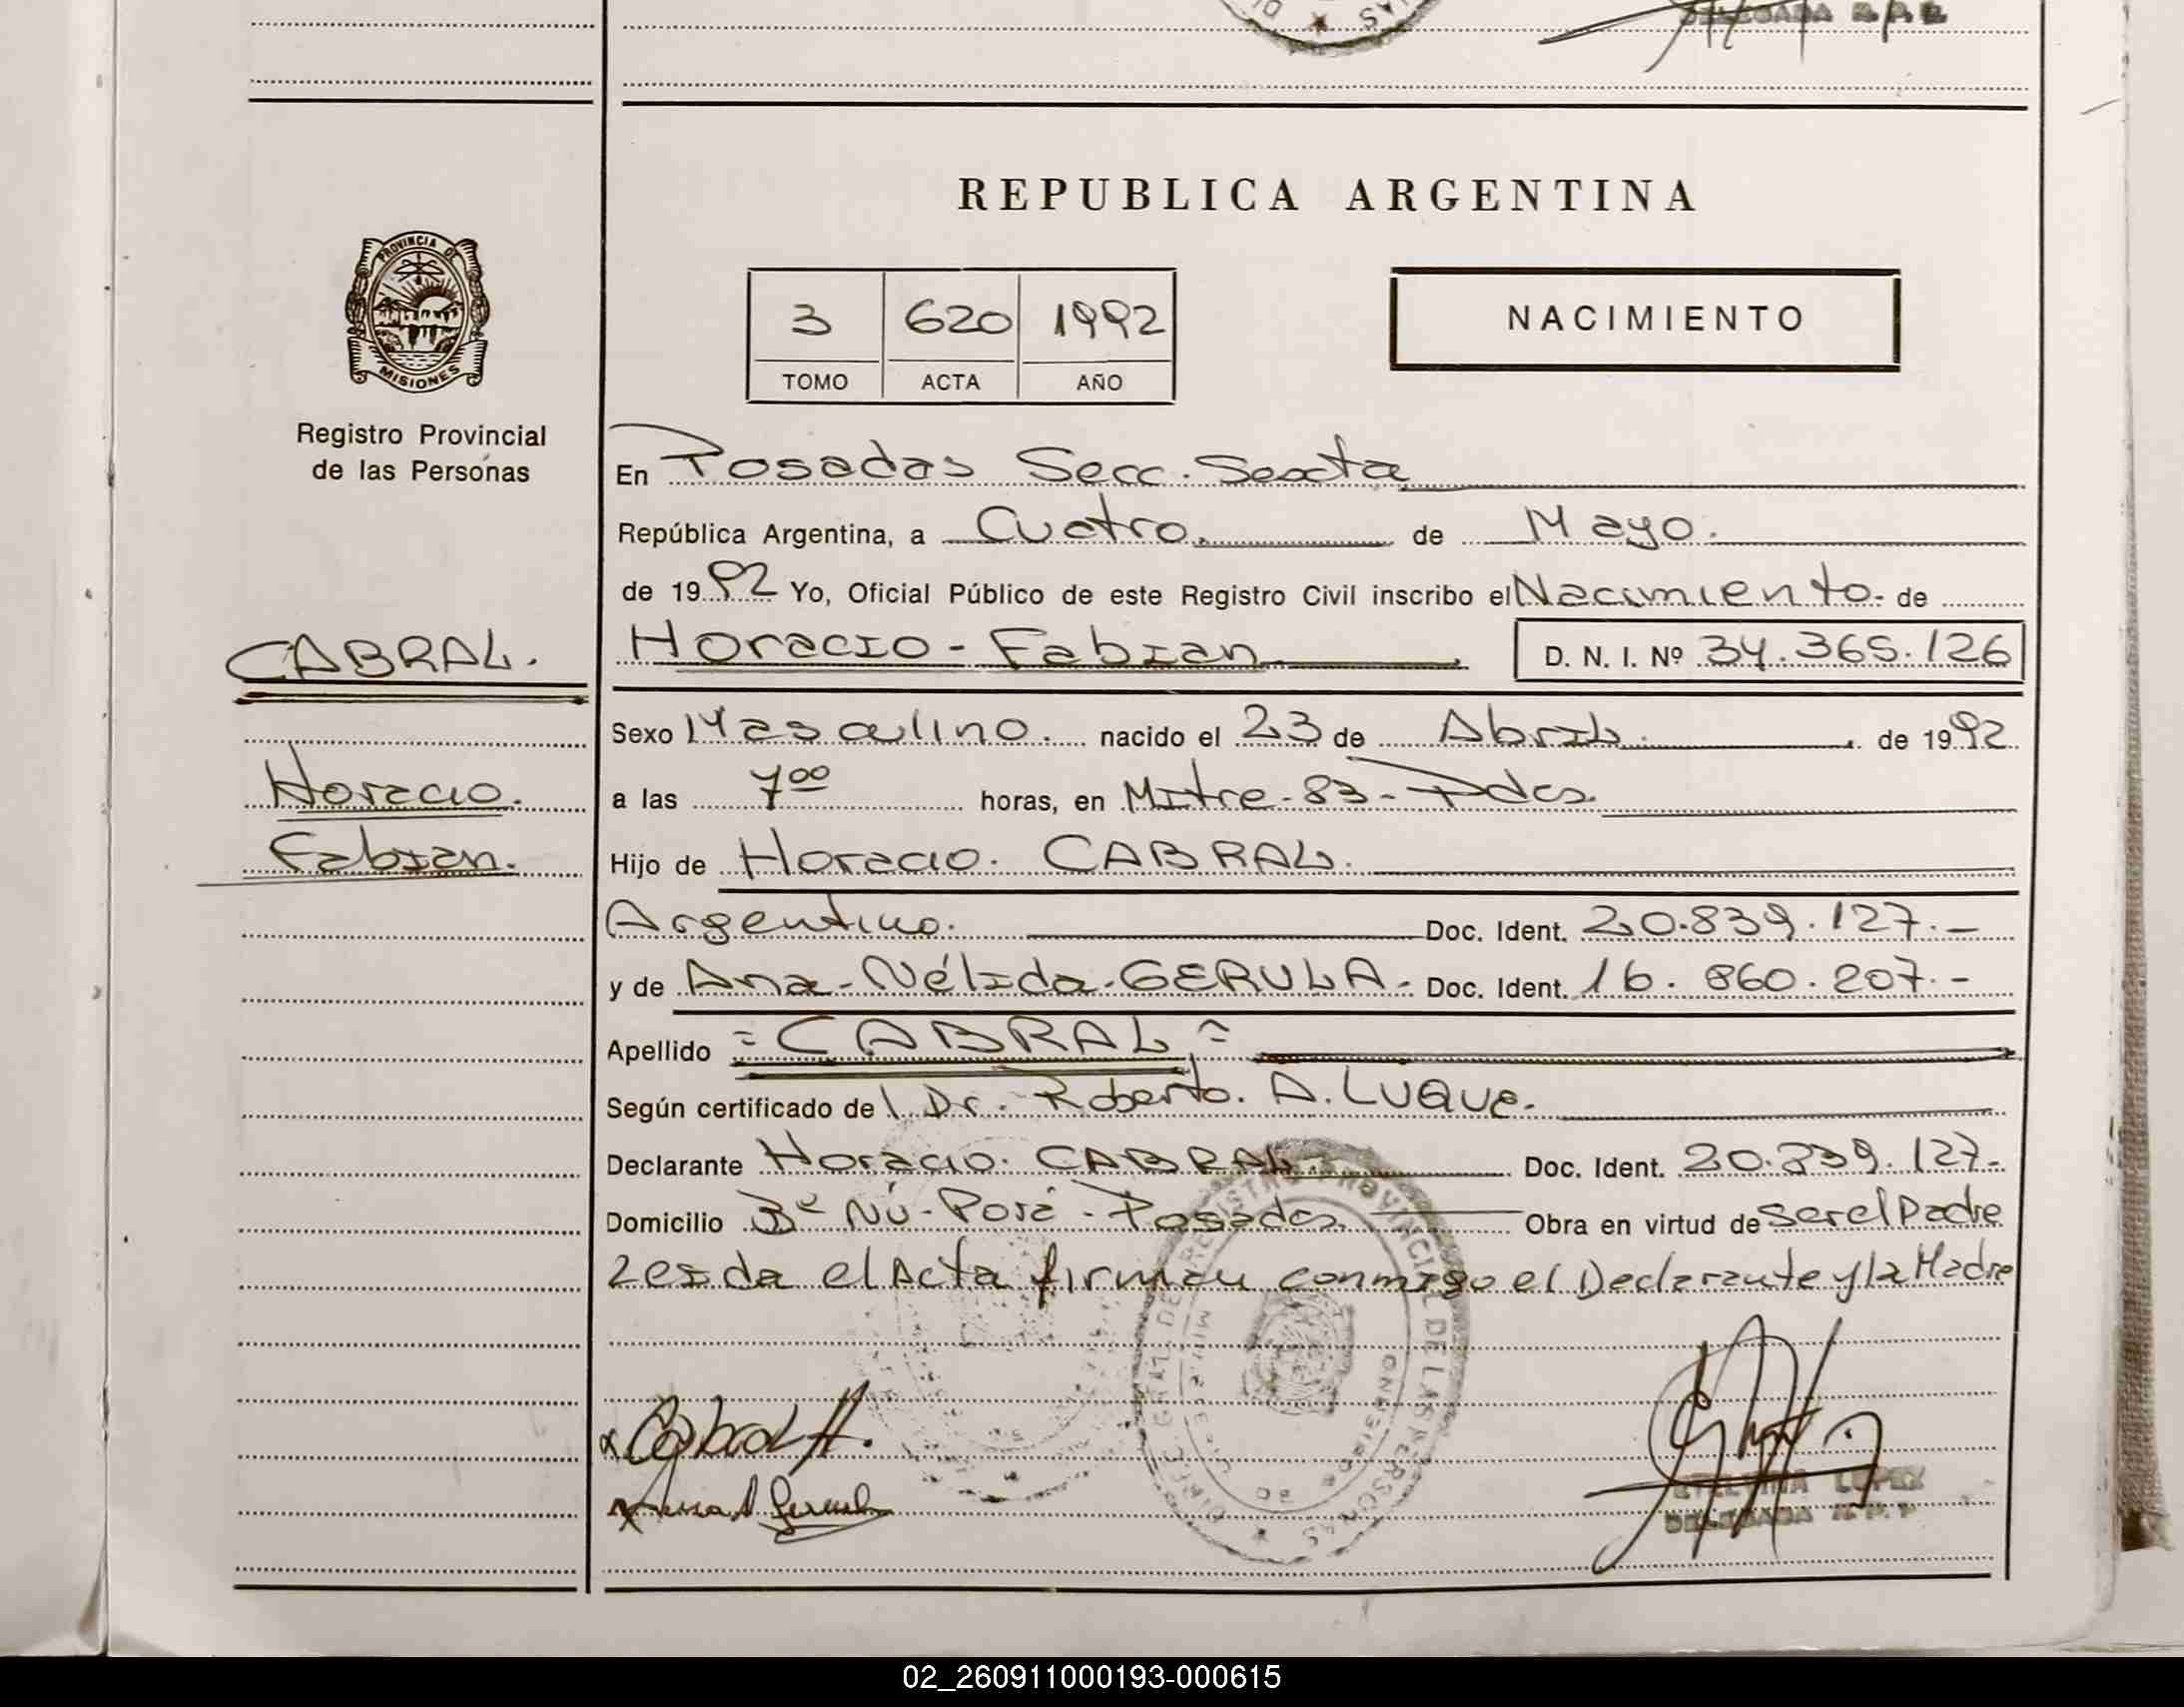 DELEGADA R. P. P.
REPUBLICA ARGENTINA
PROVINCIA DE
MISIONES
Registro Provincial
de las Personas
3 620 1992
TOMO ACTA AÑO
NACIMIENTO
En Posadas Secc. Sexta
República Argentina, a Cuatro. de Mayo.
de 1992 Yo, Oficial Público de este Registro Civil inscribo el Nacimiento. de
CABRAL.
Horacio - Fabian D. N. I. Nº 34.365.126
Sexo Masculino. nacido el 23 de Abril. de 1992
Horacio.
a las 7 00 horas, en Mitre - 83 - Pdas.
Fabian.
Hijo de Horacio. CABRAL.
Argentino. Doc. Ident. 20.839.127.-
y de Ana - Nélida - GERULA - Doc. Ident. 16.860.207.-
Apellido = CABRAL =
Según certificado de Dr. Roberto. A. LUQUE.
Declarante Horacio. CABRAL. Doc. Ident. 20.839.127-
Domicilio Bº Ñú - Porá - Posadas. Obra en virtud de ser el Padre
Leida el Acta firman conmigo el Declarante y la Madre
Cabral H.
Ana N Gerula
ETELVINA LOPEZ
DELEGADA R. P. P
02_260911000193-000615